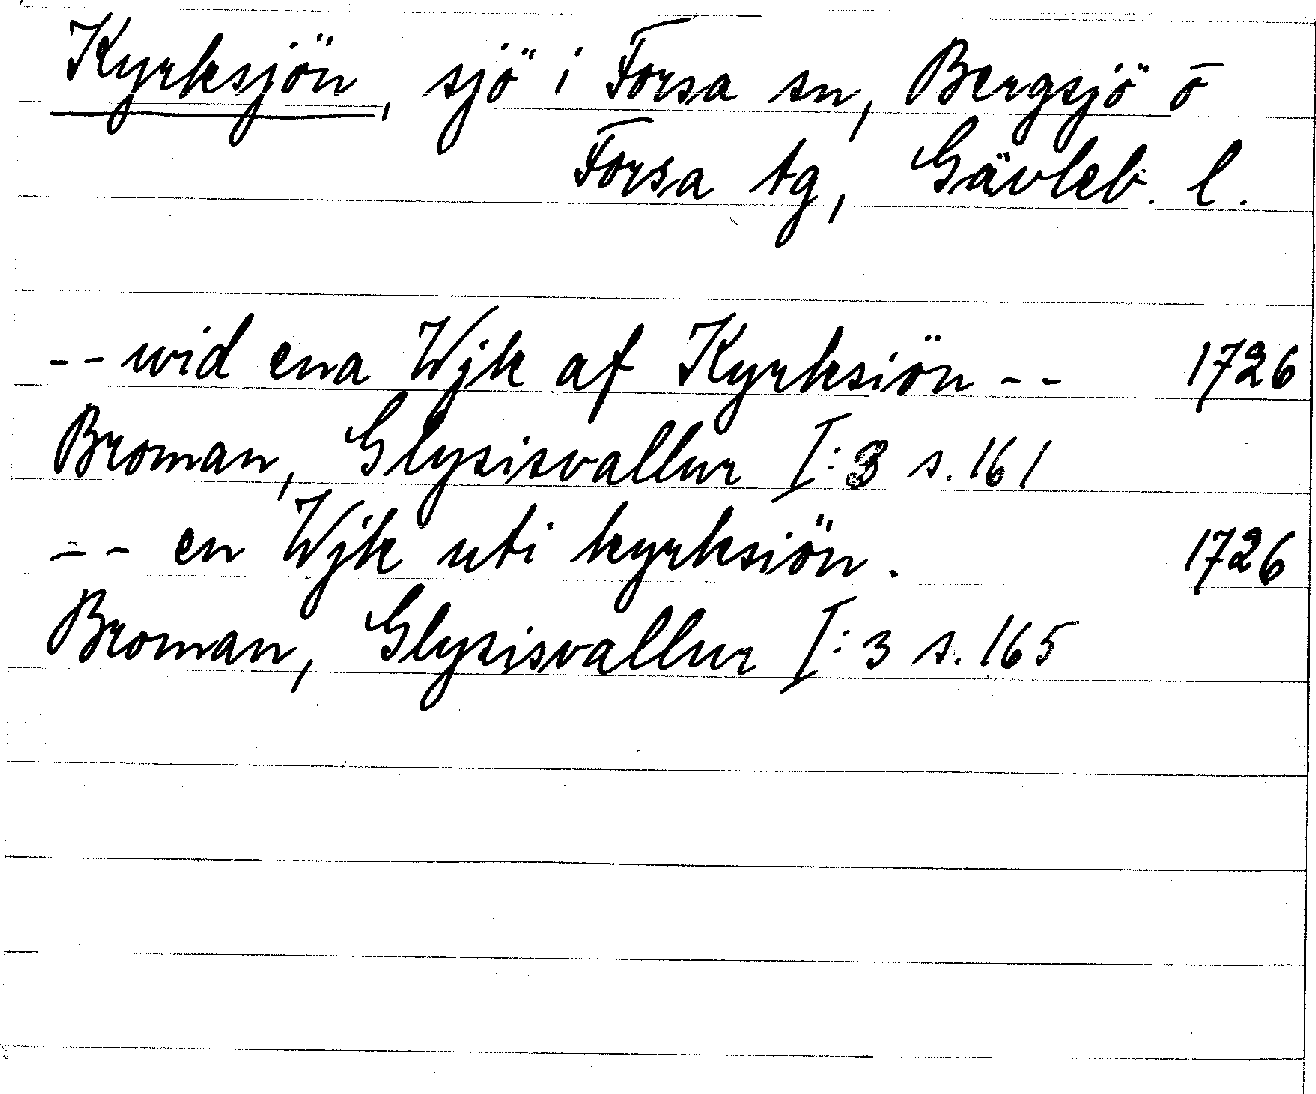 Kyrksjön, sjö i Forsa sn, Bergsjö o
Forsa tg, Gävleb. l.
-- wid ena Wjk af Kyrksiön -- 1726
Broman, Glysisvallur I:3 s. 161
-- en Wjk uti kyrksiön. 1726
Broman, Glysisvallur I:3 s. 165